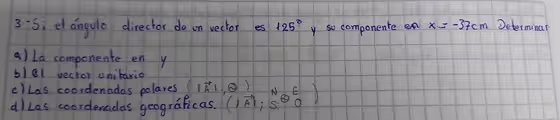 3-Si el ángulo director de un vector es 125° y su componente en x = -37cm Determinar
a) La componente en y
b) el vector unitario
c) Las coordenadas polares (|A⃗|, θ)
d) Las coordenadas geográficas. (|A⃗|; N S θ E O)